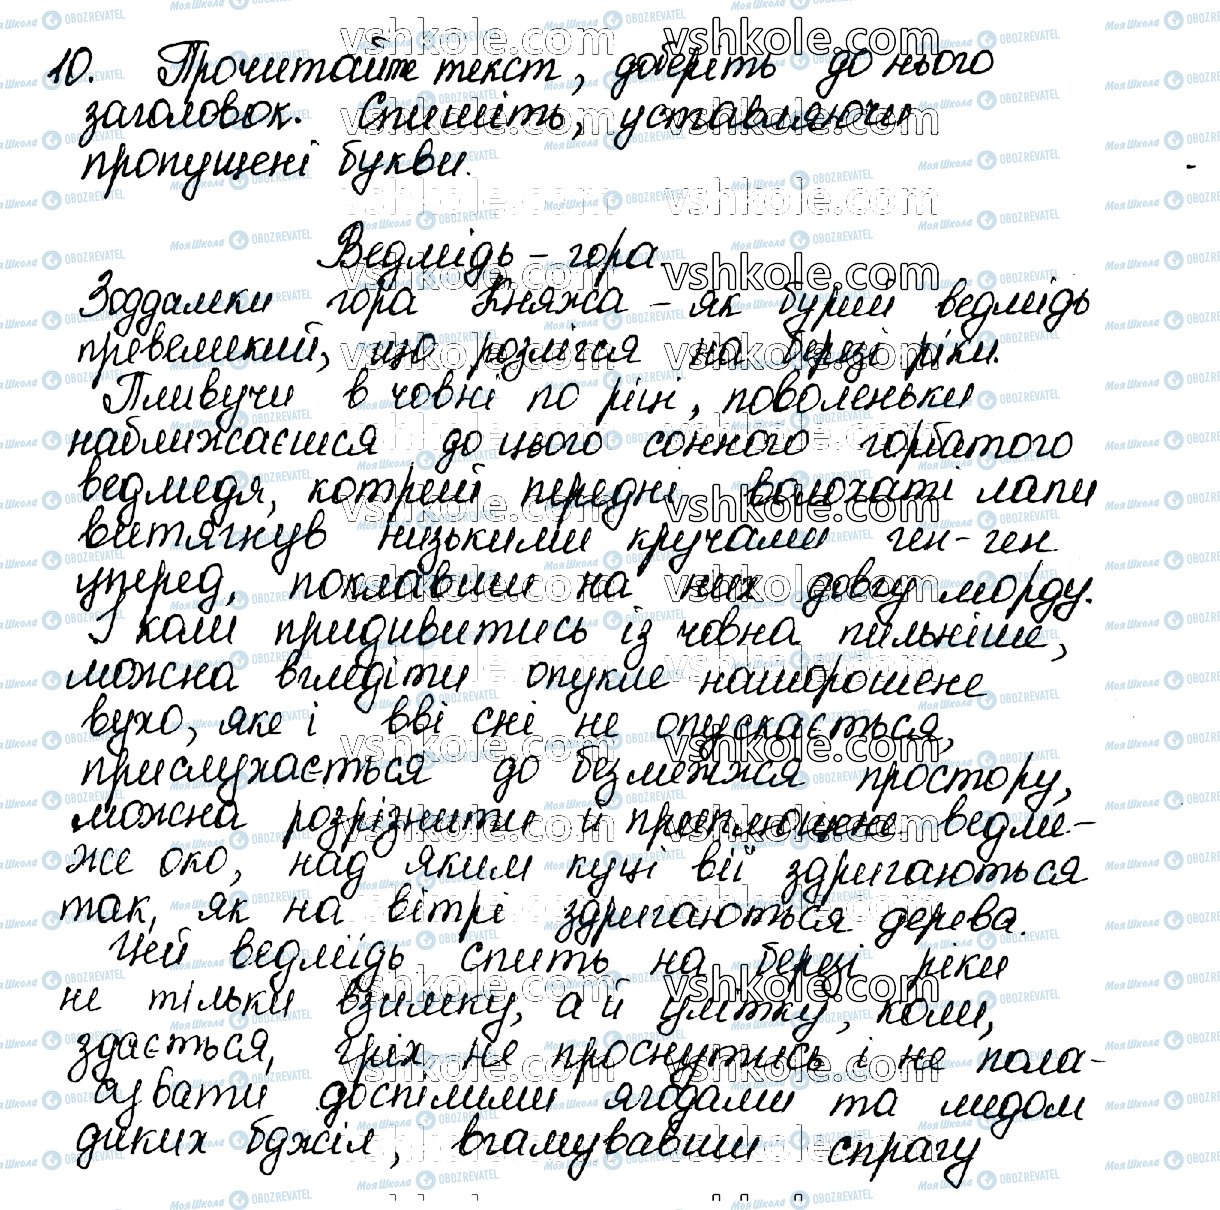 10. Прочитайте текст, доберіть до нього
заголовок. Спишіть, уставляючи
пропущені букви.
Ведмідь - гора
Зоддалеки гора Княжа - як бурий ведмідь
превеликий, що розлігся на березі ріки.
Пливучи в човні по ріці, поволеньки
наближаєшся до цього сонного горбатого
ведмедя, котрий передні волохаті лапи
витягнув низькими кручами ген-ген
уперед, поклавши на них довгу морду.
І коли придивитись із човна пильніше,
можна вгледіти опукле нашорошене
вухо, яке і вві сні не опускається,
прислухається до безмежжя простору,
можна розрізнити й приплющене ведме-
же око, над яким куці вії здригаються
так, як на вітрі здригаються дерева.
Цей ведмідь спить на березі ріки
не тільки взимку, а й улітку, коли,
здається, гріх не проснутись і не пола-
сувати доспілими ягодами та медом
диких бджіл, вгамувавши спрагу